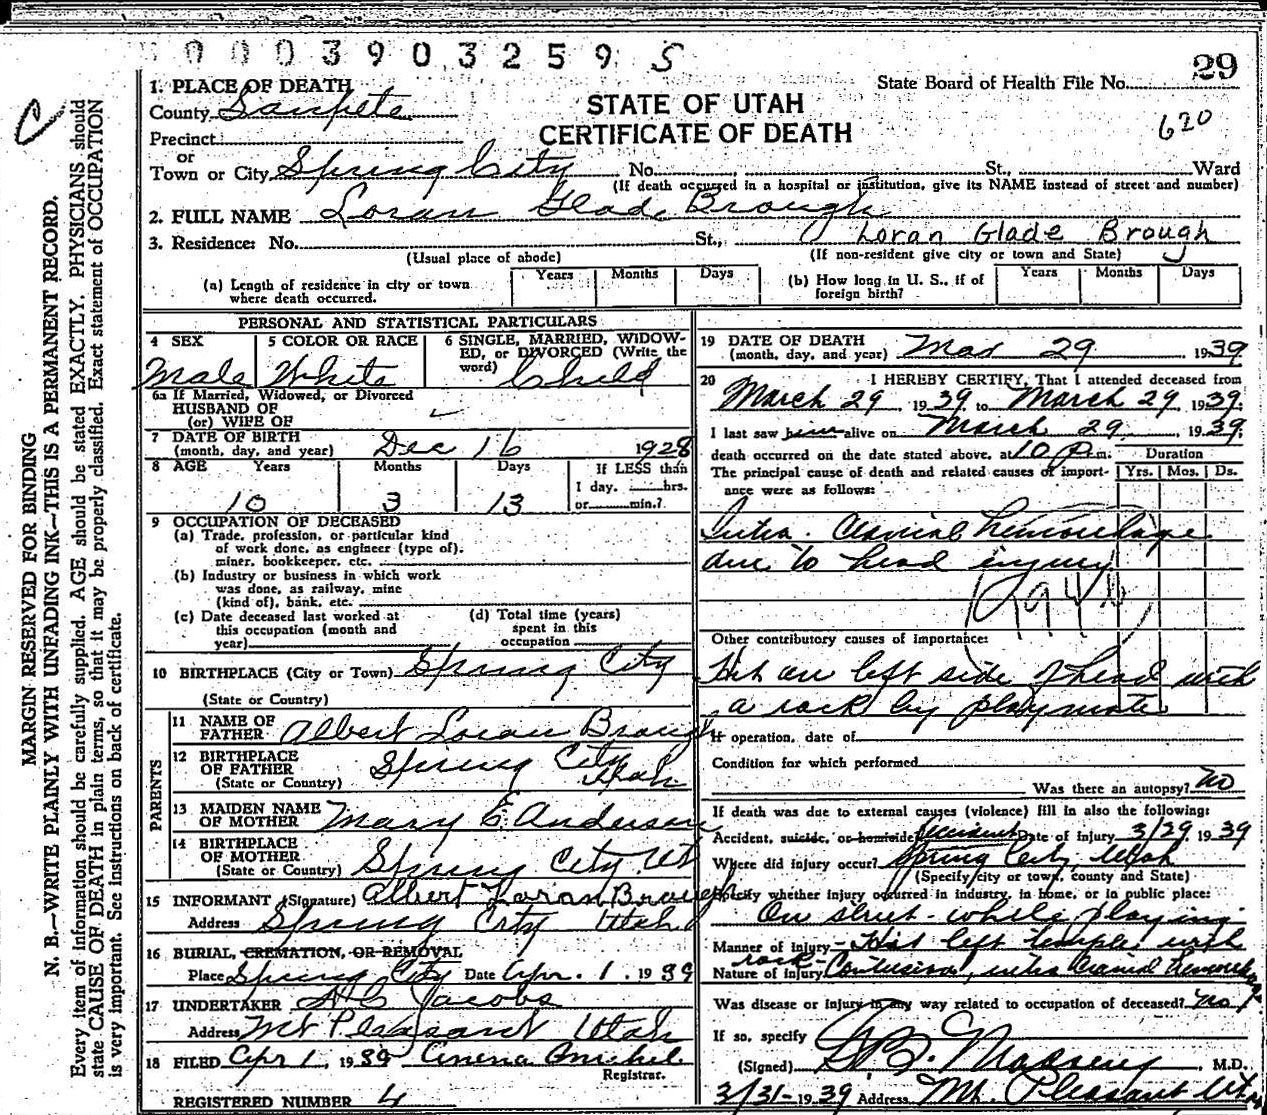 0003903259 S
29
1. PLACE OF DEATH
State Board of Health File No.
County Sanpete
STATE OF UTAH
620
Precinct
CERTIFICATE OF DEATH
or
Town or City Spring City No. St., Ward
(If death occurred in a hospital or institution, give its NAME instead of street and number)
2. FULL NAME Loran Glade Brough
3. Residence: No. St., Loran Glade Brough
(Usual place of abode) (If non-resident give city or town and State)
(a) Length of residence in city or town where death occurred. Years Months Days
(b) How long in U. S., if of foreign birth? Years Months Days
PERSONAL AND STATISTICAL PARTICULARS
4 SEX 5 COLOR OR RACE 6 SINGLE, MARRIED, WIDOW-
ED, or DIVORCED (Write the
word)
Male White Child
6a If Married, Widowed, or Divorced
HUSBAND OF
(or) WIFE OF
7 DATE OF BIRTH
(month, day, and year) Dec 16 1928
8 AGE Years Months Days If LESS than
1 day, hrs.
10 3 13 or min.?
9 OCCUPATION OF DECEASED
(a) Trade, profession, or particular kind
of work done, as engineer (type of).
miner, bookkeeper, etc.
(b) Industry or business in which work
was done, as railway, mine
(kind of), bank, etc.
(c) Date deceased last worked at
this occupation (month and
year)
(d) Total time (years)
spent in this
occupation
10 BIRTHPLACE (City or Town) Spring City
(State or Country)
PARENTS
11 NAME OF
FATHER Albert Loran Brough
12 BIRTHPLACE
OF FATHER Spring City
(State or Country) Utah
13 MAIDEN NAME
OF MOTHER Mary E. Anderson
14 BIRTHPLACE
OF MOTHER
(State or Country) Spring City Ut
15 INFORMANT (Signature) Albert Loran Brough
Address Spring City Utah
16 BURIAL, CREMATION, OR REMOVAL
Place Spring City Date Apr. 1. 1939
17 UNDERTAKER Jacobs
Address Mt Pleasant Utah
18 FILED Apr 1, 1939
Registrar.
REGISTERED NUMBER 4
19 DATE OF DEATH
(month, day, and year) Mar 29 1939
20 I HEREBY CERTIFY, That I attended deceased from
March 29, 1939 to March 29, 1939.
I last saw him alive on March 29, 1939,
death occurred on the date stated above, at 10 P.m. Duration
The principal cause of death and related causes of import- Yrs. Mos. Ds.
ance were as follows:
Intra. Cranial hemorrhage
due to head injury
194
Other contributory causes of importance:
Hit on left side of head with
a rock by playmate
If operation, date of
Condition for which performed
Was there an autopsy? no
If death was due to external causes (violence) fill in also the following:
Accident, suicide, or homicide accident Date of injury 3/29 1939
Where did injury occur? Spring City Utah
(Specify city or town, county and State)
Specify whether injury occurred in industry, in home, or in public place:
On street - while playing
Manner of injury - Hit left temple with
rock -
Nature of injury Contusion, intra Cranial hemorrhage
Was disease or injury in any way related to occupation of deceased? no
If so, specify
(Signed) M.D.
3/31-1939 Address Mt. Pleasant Ut
C
MARGIN RESERVED FOR BINDING
N. B.—WRITE PLAINLY WITH UNFADING INK—THIS IS A PERMANENT RECORD.
Every item of information should be carefully supplied. AGE should be stated EXACTLY. PHYSICIANS should
state CAUSE OF DEATH in plain terms, so that it may be properly classified. Exact statement of OCCUPATION
is very important. See instructions on back of certificate.